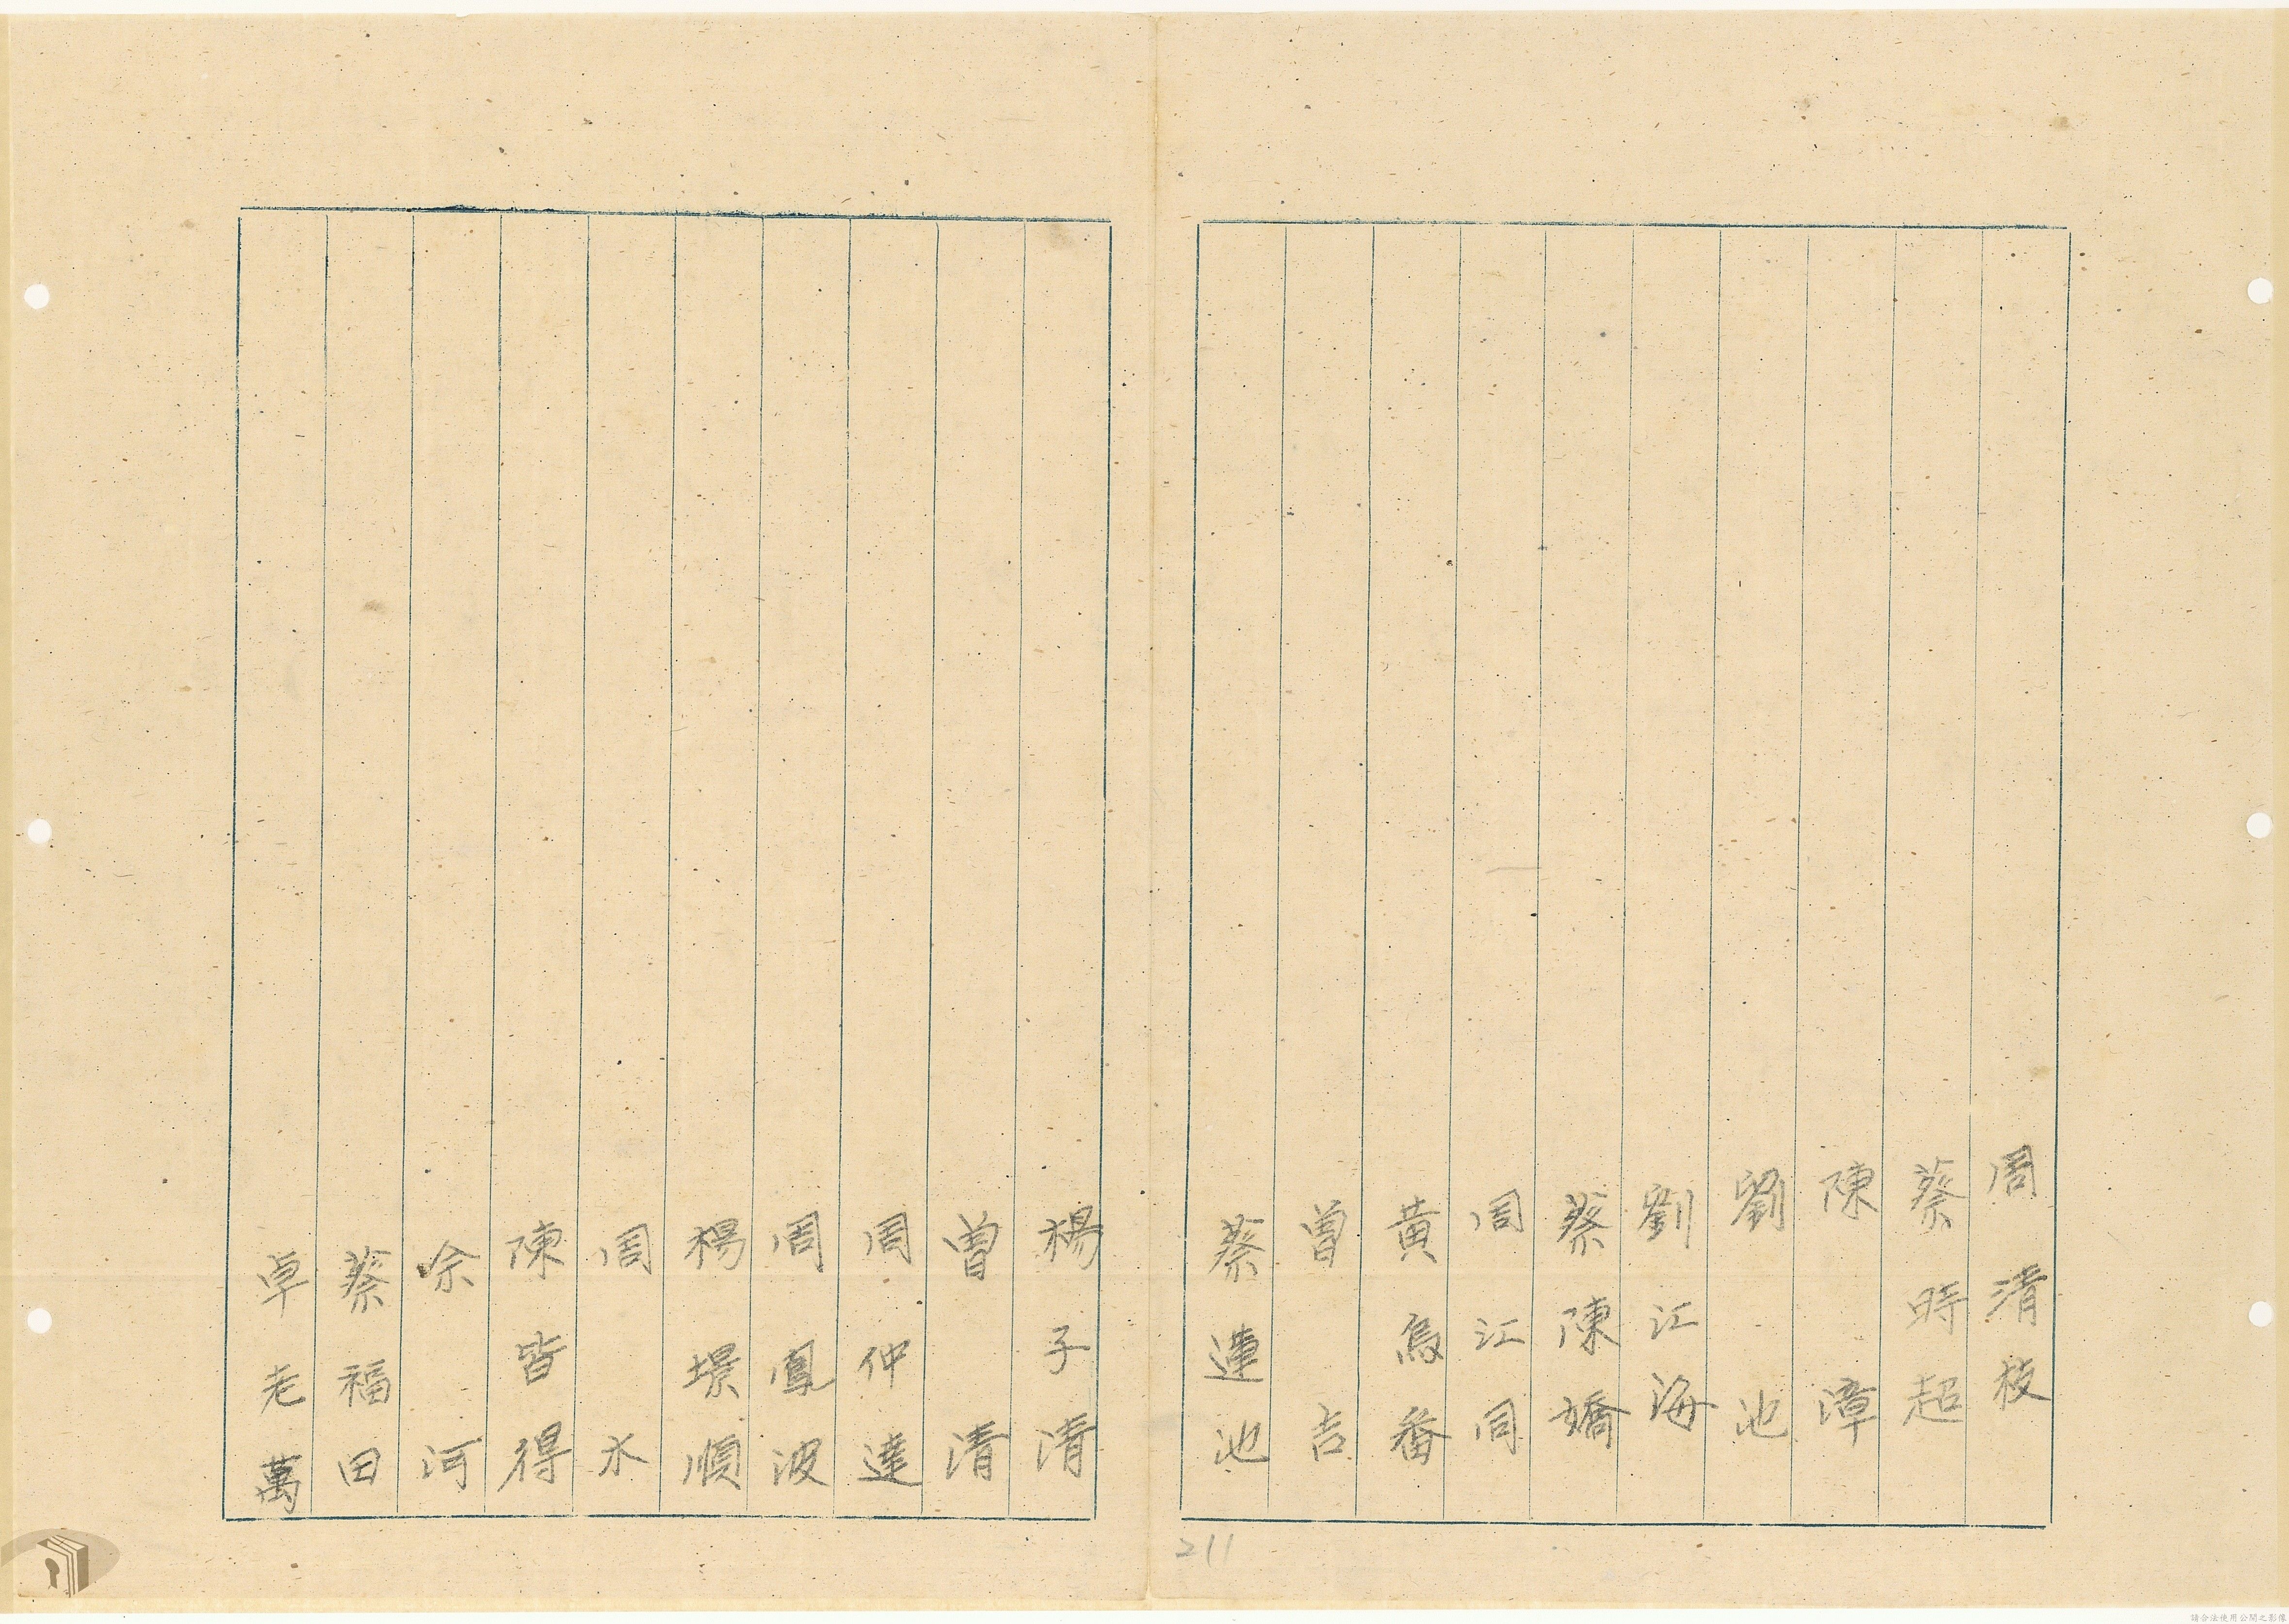 周清枝
蔡時超
陳漳
劉池
劉江海
蔡陳嬌
周江同
黃烏番
曾吉
蔡蓮池
楊子清
曾清
周仲達
周鳳波
楊順
周水
陳皆得
余河
蔡福田
卓老萬
211
請合法使用公開之影像